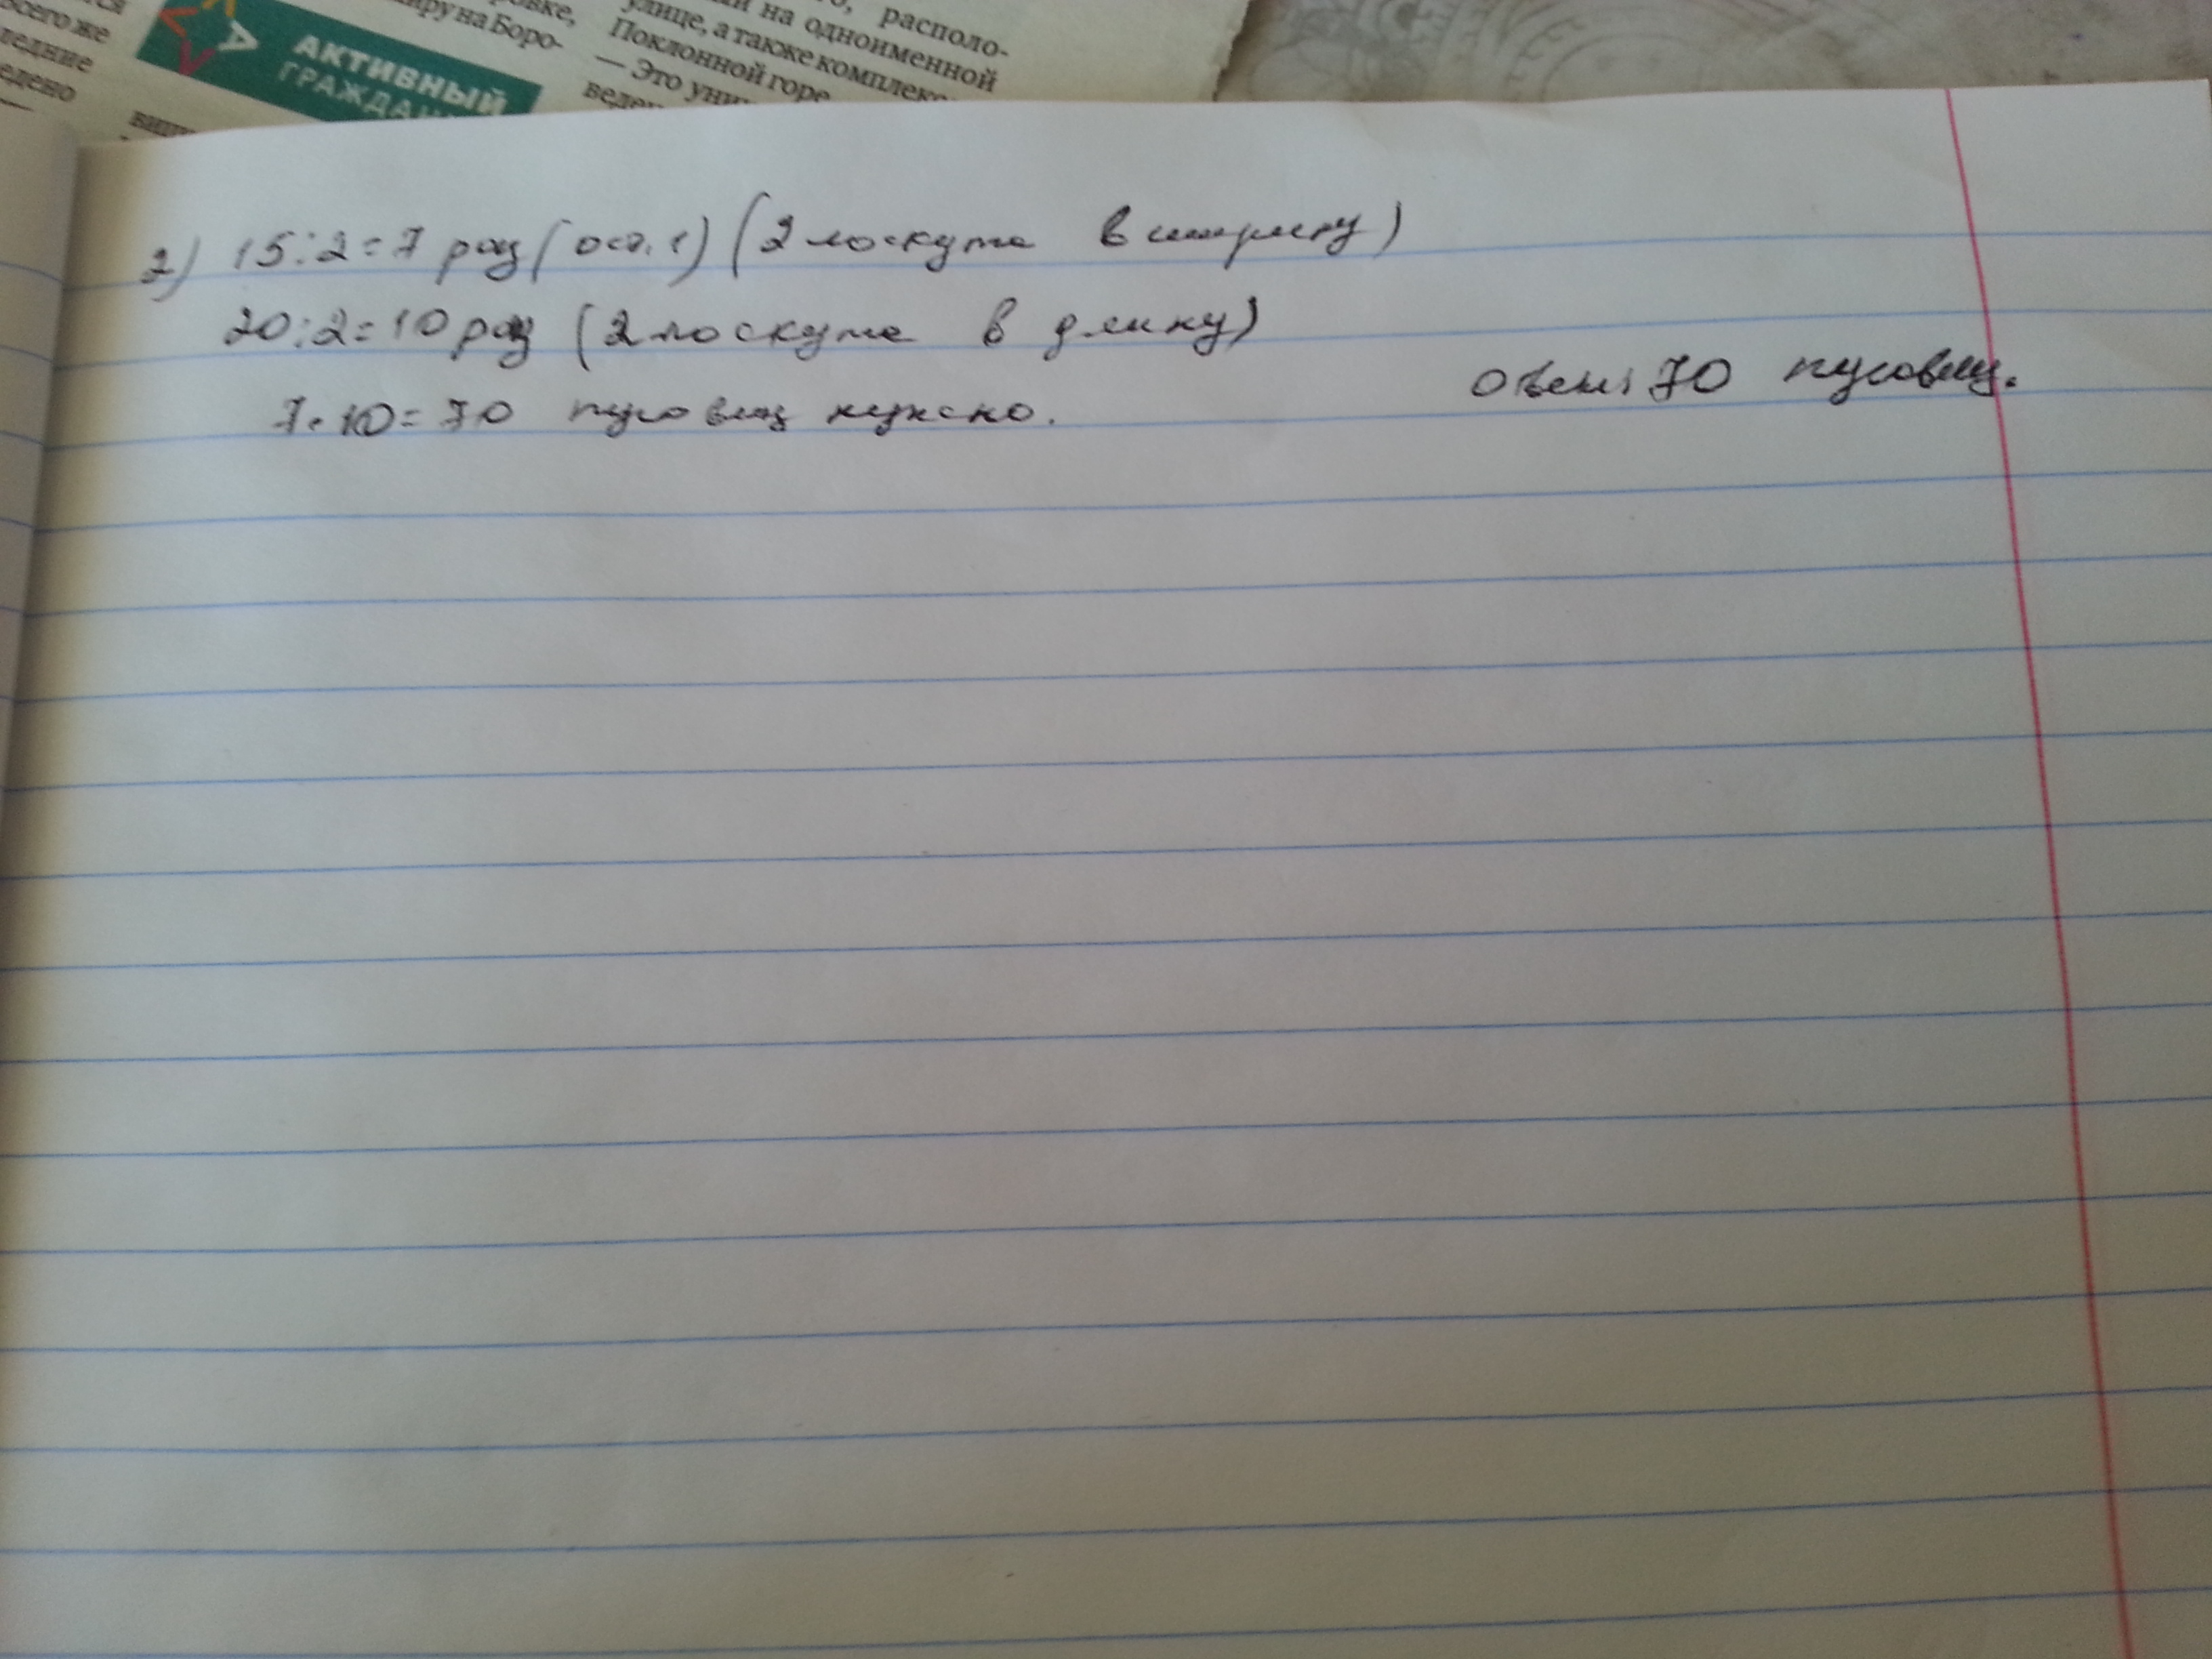 всего же
ледние
едено
—
ровке,
миру на Боро-
АКТИВНЫЙ
ГРАЖДАН
располо-
на одноименной
улице, а также комплекс
Поклонной горе
— Это уни
веде
2) 15:2=7 раз (ост. 1) (2 лоскута в ширину)
20:2=10 раз (2 лоскута в длину)
7·10=70 пуговиц нужно.
Ответ: 70 пуговиц.